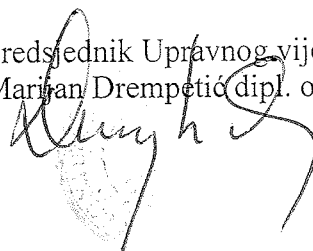 redsjednik Upravnog vije
Marijan Drempetić dipl. o